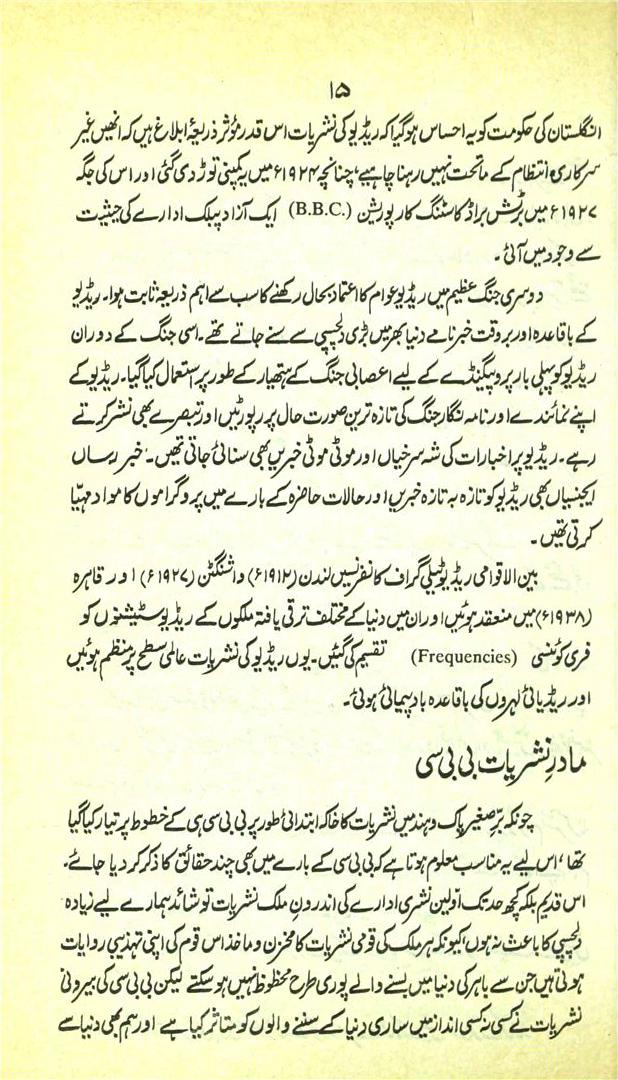 ۱۵
انگلستان کی حکومت کو یہ احساس ہوگیا کہ ریڈیو کی نشریات اس قدر مؤثر ذریعۂ ابلاغ ہیں کہ انھیں غیر
سرکاری انتظام کے ماتحت نہیں رہنا چاہیے، چنانچہ ۱۹۲۴ء میں یہ کمپنی توڑ دی گئی اور اس کی جگہ
۱۹۲۷ء میں برٹش براڈ کاسٹنگ کارپوریشن (B.B.C.) ایک آزاد پبلک ادارے کی حیثیت
سے وجود میں آئی۔
دوسری جنگ عظیم میں ریڈیو عوام کا اعتماد بحال رکھنے کا سب سے اہم ذریعہ ثابت ہوا۔ ریڈیو
کے باقاعدہ اور بروقت خبرنامے دنیا بھر میں بڑی دلچسپی سے سنے جاتے تھے۔ اسی جنگ کے دوران
ریڈیو کو پہلی بار پروپیگنڈے کے لیے اعصابی جنگ کے ہتھیار کے طور پر استعمال کیا گیا۔ ریڈیو کے
اپنے نمائندے اور نامہ نگار جنگ کی تازہ ترین صورت حال پر رپورٹیں اور تبصرے بھی نشر کرتے
رہے۔ ریڈیو پر اخبارات کی شہ سرخیاں اور موٹی موٹی خبریں بھی سنائی جاتی تھیں۔ خبر رساں
ایجنسیاں بھی ریڈیو کو تازہ بہ تازہ خبریں اور حالات حاضرہ کے بارے میں پروگراموں کا مواد مہیّا
کرتی تھیں۔
بین الاقوامی ریڈیو ٹیلی گراف کانفرنسیں لندن (۱۹۱۲ء) واشنگٹن (۱۹۲۷ء) اور قاہرہ
(۱۹۳۸ء) میں منعقد ہوئیں اور ان میں دنیا کے مختلف ترقی یافتہ ملکوں کے ریڈیو سٹیشنوں کو
فری کوئنسی (Frequencies) تقسیم کی گئیں۔ یوں ریڈیو کی نشریات عالمی سطح پر منظم ہوئیں
اور ریڈیائی لہروں کی باقاعدہ بادپیمائی ہوئی۔
مادرِ نشریات بی بی سی
چونکہ برِّصغیر پاک و ہند میں نشریات کا خاکہ ابتدائی طور پر بی بی سی ہی کے خطوط پر تیار کیا گیا
تھا، اس لیے یہ مناسب معلوم ہوتا ہے کہ بی بی سی کے بارے میں بھی چند حقائق کا ذکر کر دیا جائے۔
اس قدیم بلکہ کچھ حد تک اوّلین نشری ادارے کی اندرونِ ملک نشریات تو شائد ہمارے لیے زیادہ
دلچسپی کا باعث نہ ہوں، کیونکہ ہر ملک کی قومی نشریات کا مخزن و ماخذ اس قوم کی اپنی تہذیبی روایات
ہوتی ہیں جن سے باہر کی دنیا میں بسنے والے پوری طرح محظوظ نہیں ہو سکتے لیکن بی بی سی کی بیرونی
نشریات نے کسی نہ کسی انداز میں ساری دنیا کے سننے والوں کو متاثر کیا ہے اور ہم بھی دنیا سے